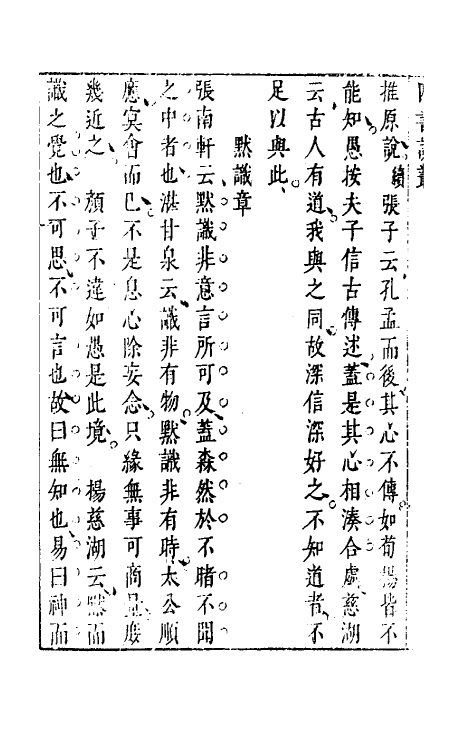 推原說續 張子云孔孟而後其心不傳如荀揚皆不
能知愚按夫子信古傳述蓋是其心相湊合處慈湖
云古人有道我與之同故深信深好之不知道者不
足以與此
默識章
張南軒云默識非意言所可及蓋森然於不睹不聞
之中者也湛甘泉云識非有物默識非有時太公順
應冥會而已不是息心除妄念只緣無事可商量庶
幾近之 顏子不違如愚是此境 楊慈湖云默而
識之覺也不可思不可言也故曰無知也易曰神而